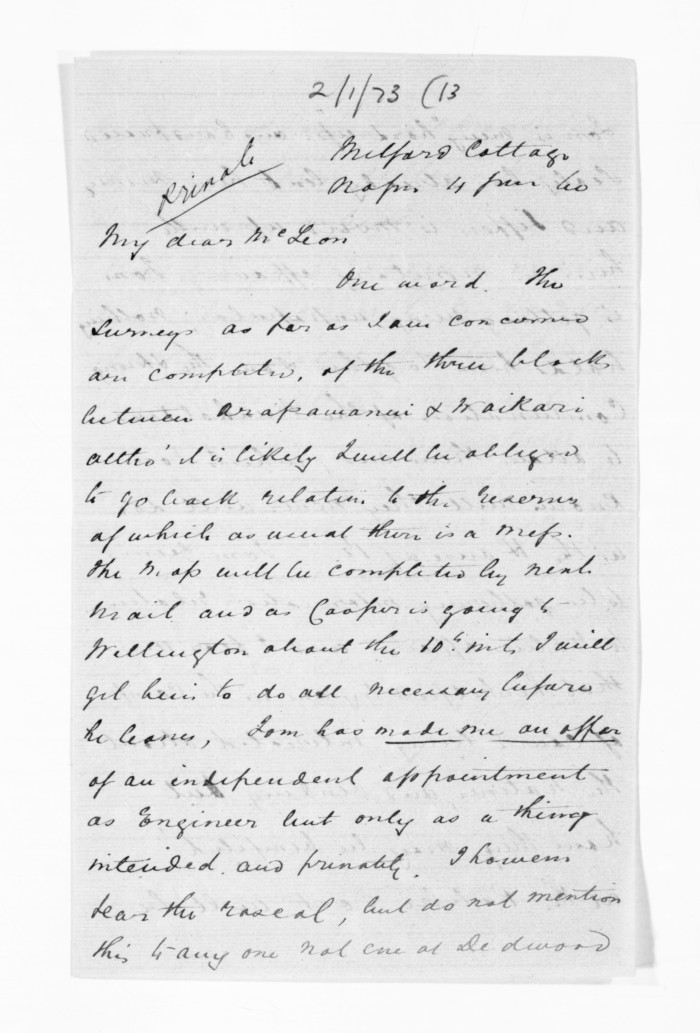 2/1/73 (13
Private
Milford Cottage
Napier 4 Jan 60
My dear McLean
One word. The
surveys as far as I am concerned
are completed, of the three blocks
between Arapawanui & Waikari
altho' it is likely I will be obliged
to go back relation to the reserves
of which as usual there is a mess.
The Map will be completed by next
Mail and as Cooper is going to
Wellington about the 10th inst I will
get him to do all necessary before
he leaves, Tom has made me an offer
of an independent appointment
as Engineer but only as a thing
intended and privately. I however
fear the rascal, but do not mention
this to any one not even at Dedwood